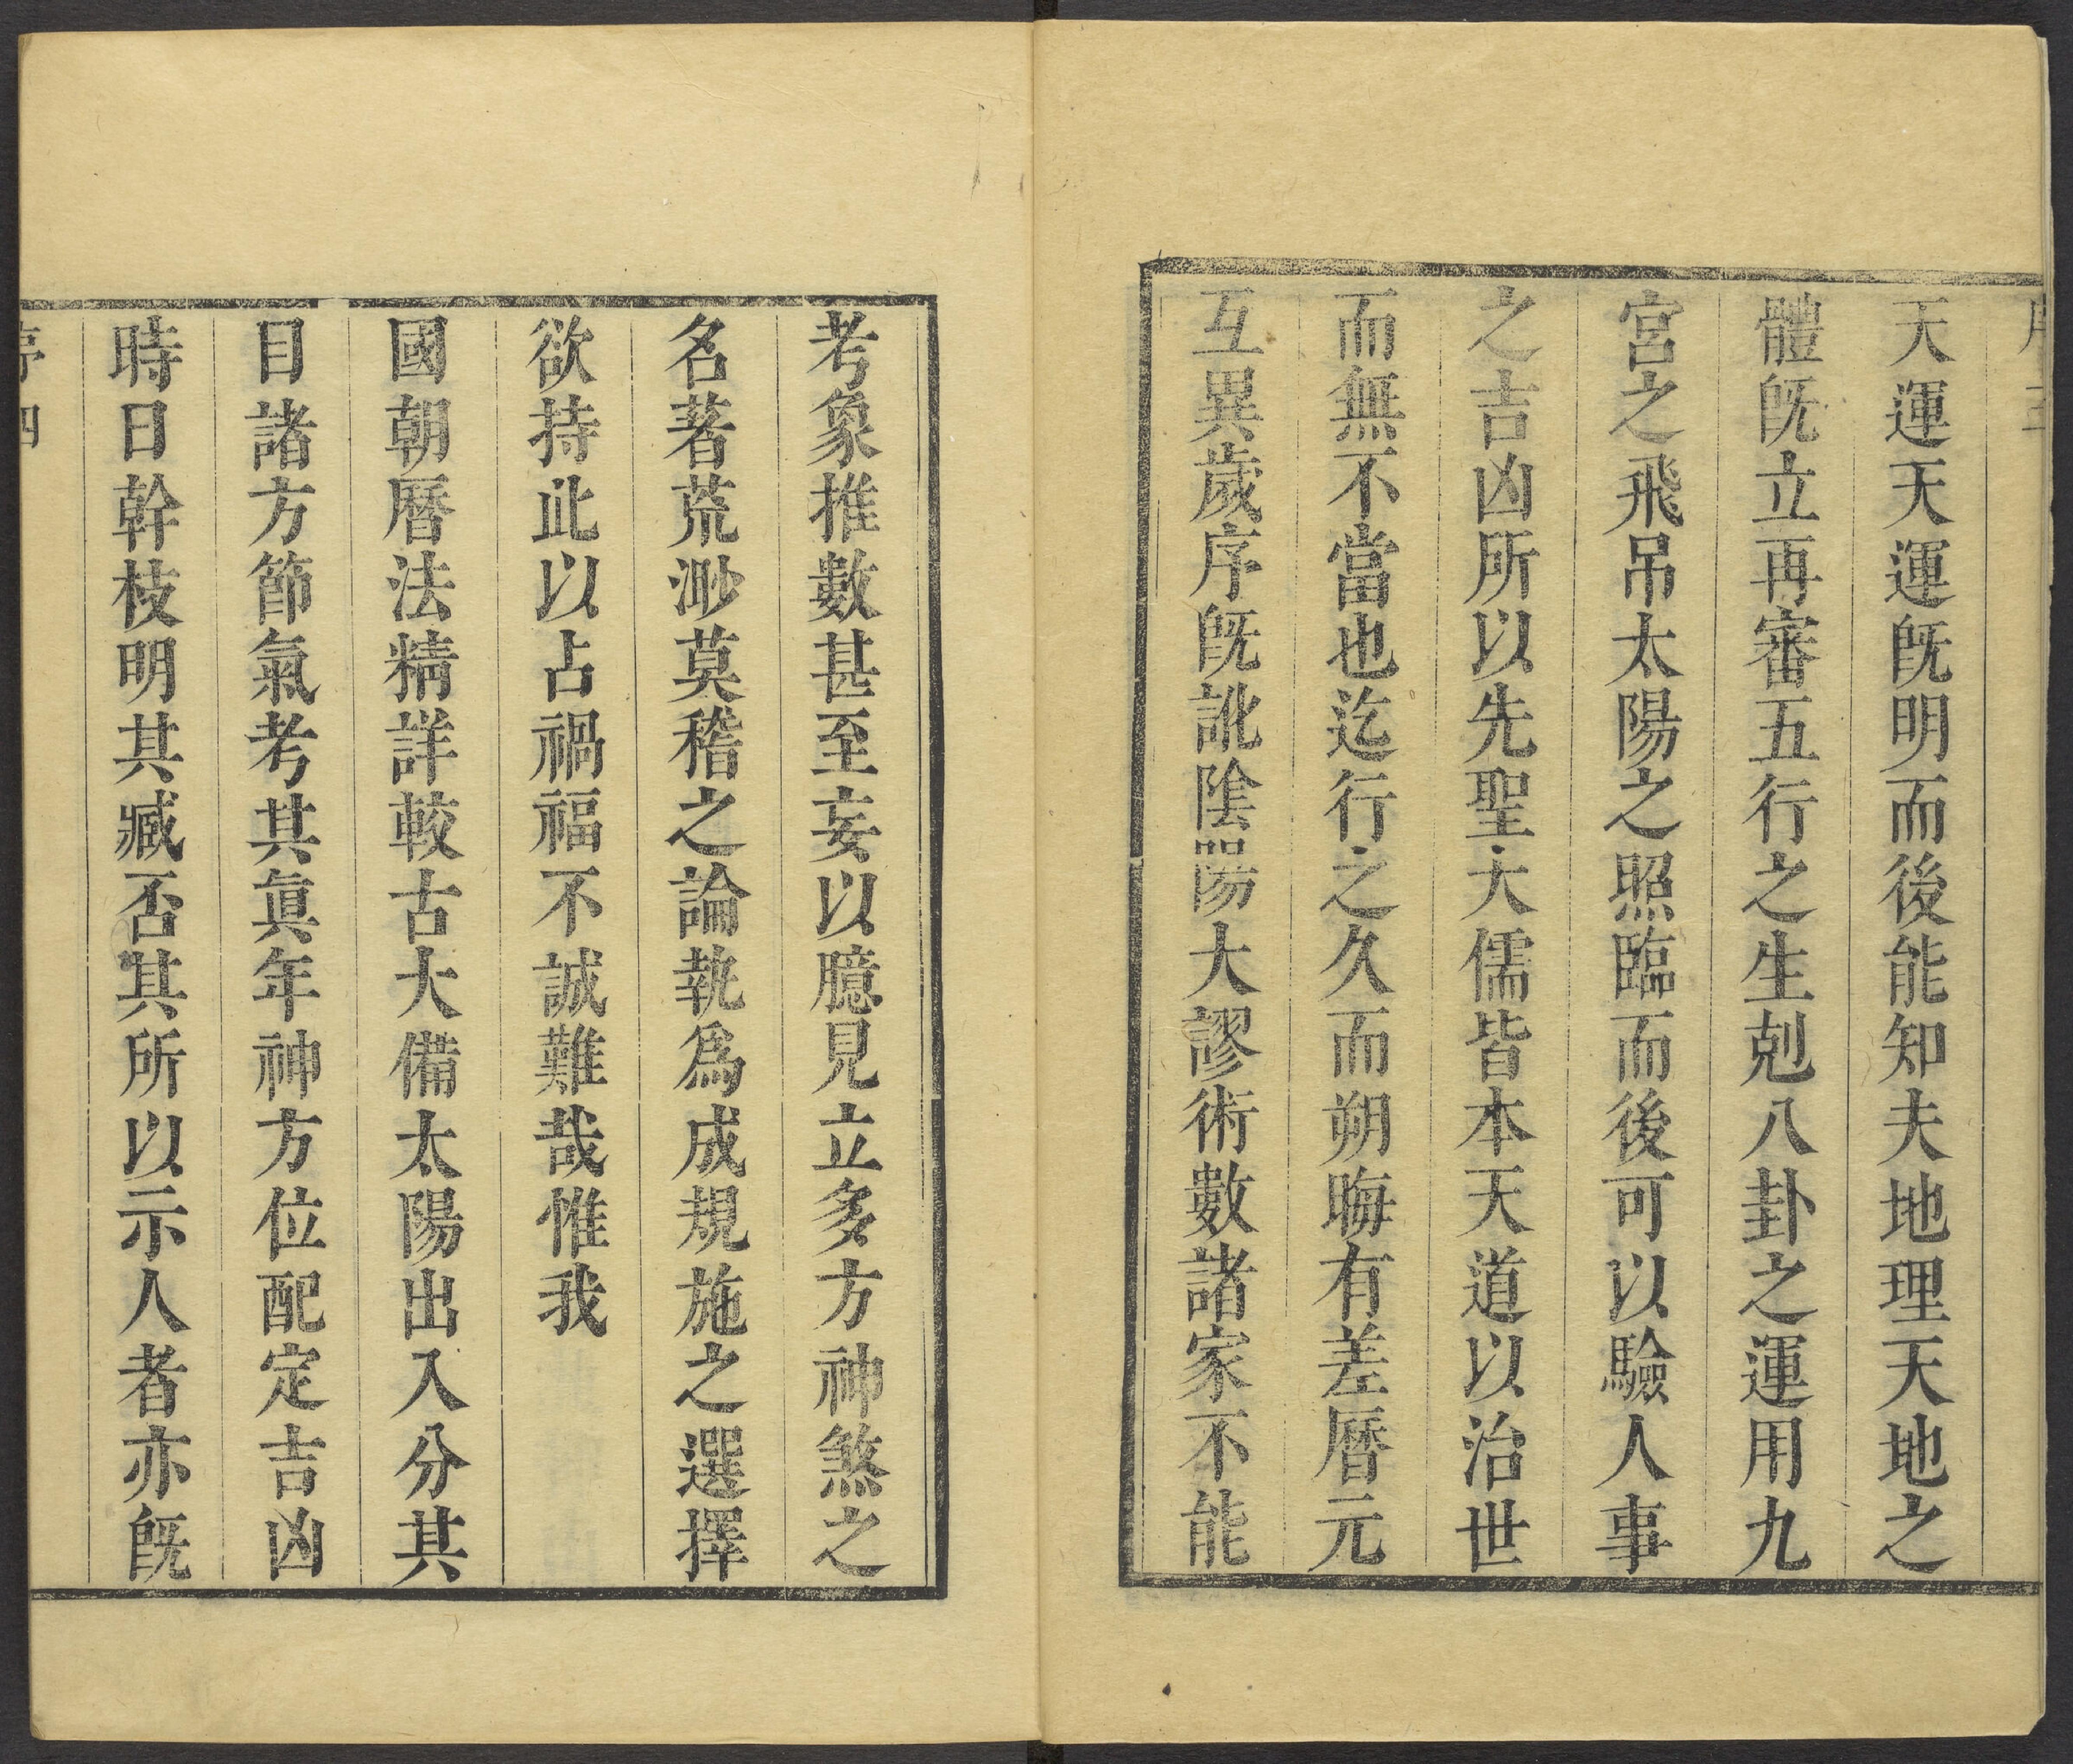 天運天運旣明而後能知夫地理天地之
體旣立再審五行之生剋八卦之運用九
宮之飛吊太陽之照臨而後可以驗人事
之吉凶所以先聖大儒皆本天道以治世
而無不當也迄行之久而朔晦有差曆元
互異歲序旣訛陰陽大謬術數諸家不能
考象推數甚至妄以臆見立多方神煞之
名著荒渺莫稽之論執爲成規施之選擇
欲持此以占禍福不誠難哉惟我
國朝曆法精詳較古大備太陽出入分其
目諸方節氣考其眞年神方位配定吉凶
時日幹枝明其臧否其所以示人者亦旣
序四